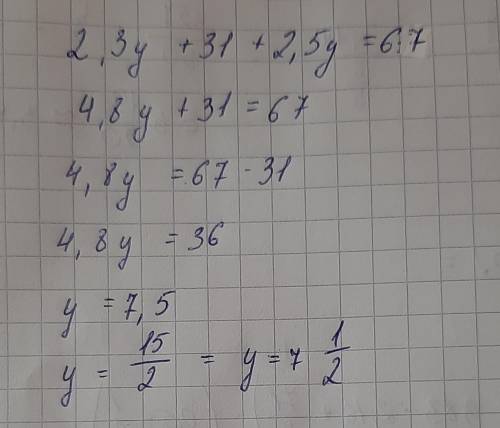 2,3y + 31 + 2,5y = 67
4,8y + 31 = 67
4,8y = 67 - 31
4,8y = 36
y = 7,5
y = 15/2 = y = 7 1/2